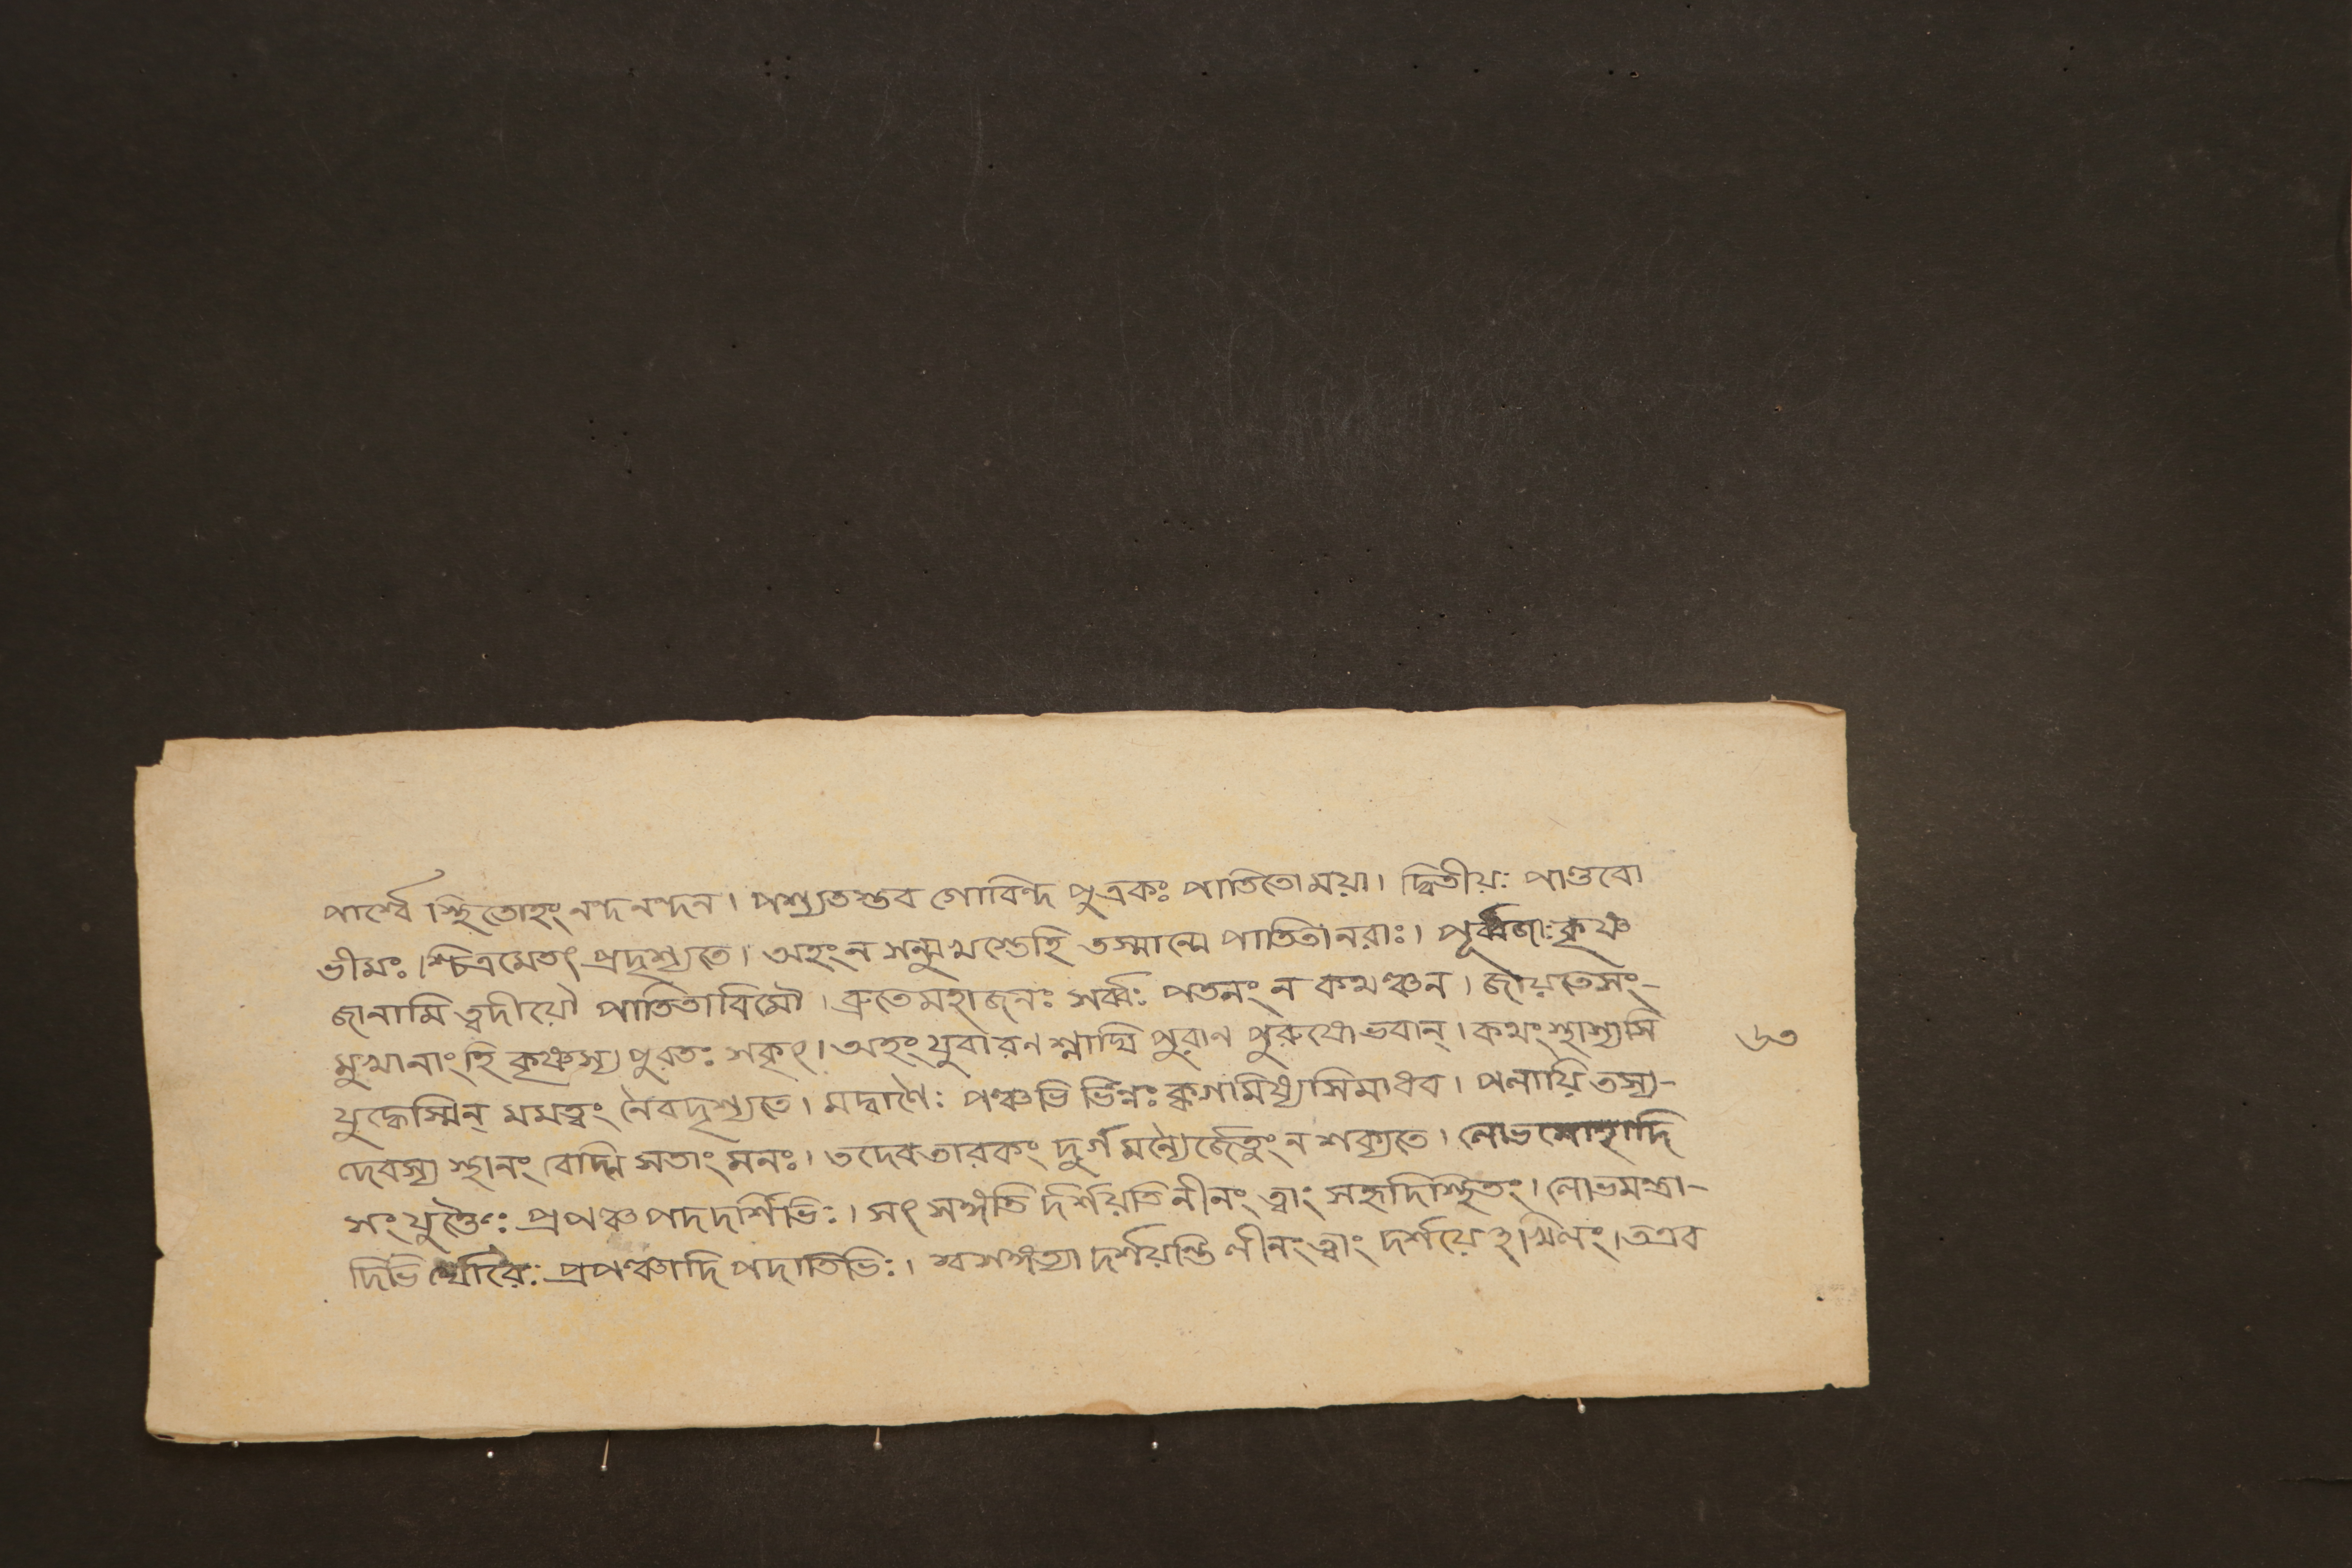 পার্শ্বে স্থিতোহং নন্দনন্দন। পশ্যতস্তব গোবিন্দ পুত্রকঃ পাতিতোময়া। দ্বিতীয়ঃ পাণ্ডবো
ভীমঃ।শ্চিত্রমেতৎ প্রদৃশ্যতে। অহংন সন্মুখস্তেহি তস্মান্মে পাতিতানরাঃ। পূর্ব্বজাঃকৃষ্ণ
জানামি ত্বদীয়ৌ পাতিতাবিমৌ। ব্রুতেমহাজনঃ সর্ব্বঃ পতনং ন কথঞ্চন। জায়তেসং-
মুখানাংহি কৃষ্ণস্য পুরতঃ সকৃৎ। অহংযুবা রণশ্লাঘি পুরাণ পুরুষোভবান্। কথংস্থাস্যসি
যুদ্ধেস্মিন্ মমত্বং নৈবদৃশ্যতে। মদ্বাণৈঃ পঞ্চভি র্ভিন্নঃ ক্বগমিষ্যসিমাধব। পলায়িতস্য-
দেবস্য স্থানং বেদ্মি সতাং মনঃ। তদেবতারকং দুর্গমন্যৈর্জেতুংন শক্যতে। লোভমোহাদি
সংযুক্তৈঃ প্রপঞ্চপদদর্শিভিঃ। সৎসঙ্গতি র্দর্শয়তিলীনং ত্বাং সহৃদিস্থিতং। লোভমন্ত্রা-
দিভি র্ঘোরৈঃ প্রপঞ্চাদি পদাতিভিঃ। স্বসঙ্গত্যা দর্শয়ন্তি লীনংত্বাং দর্শয়ে খিলং।তত্রব
৬৩